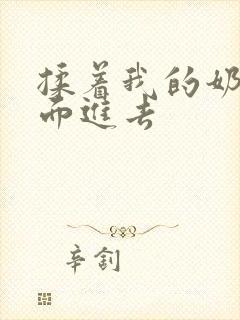 揉着我的奶
而進去
辛劄